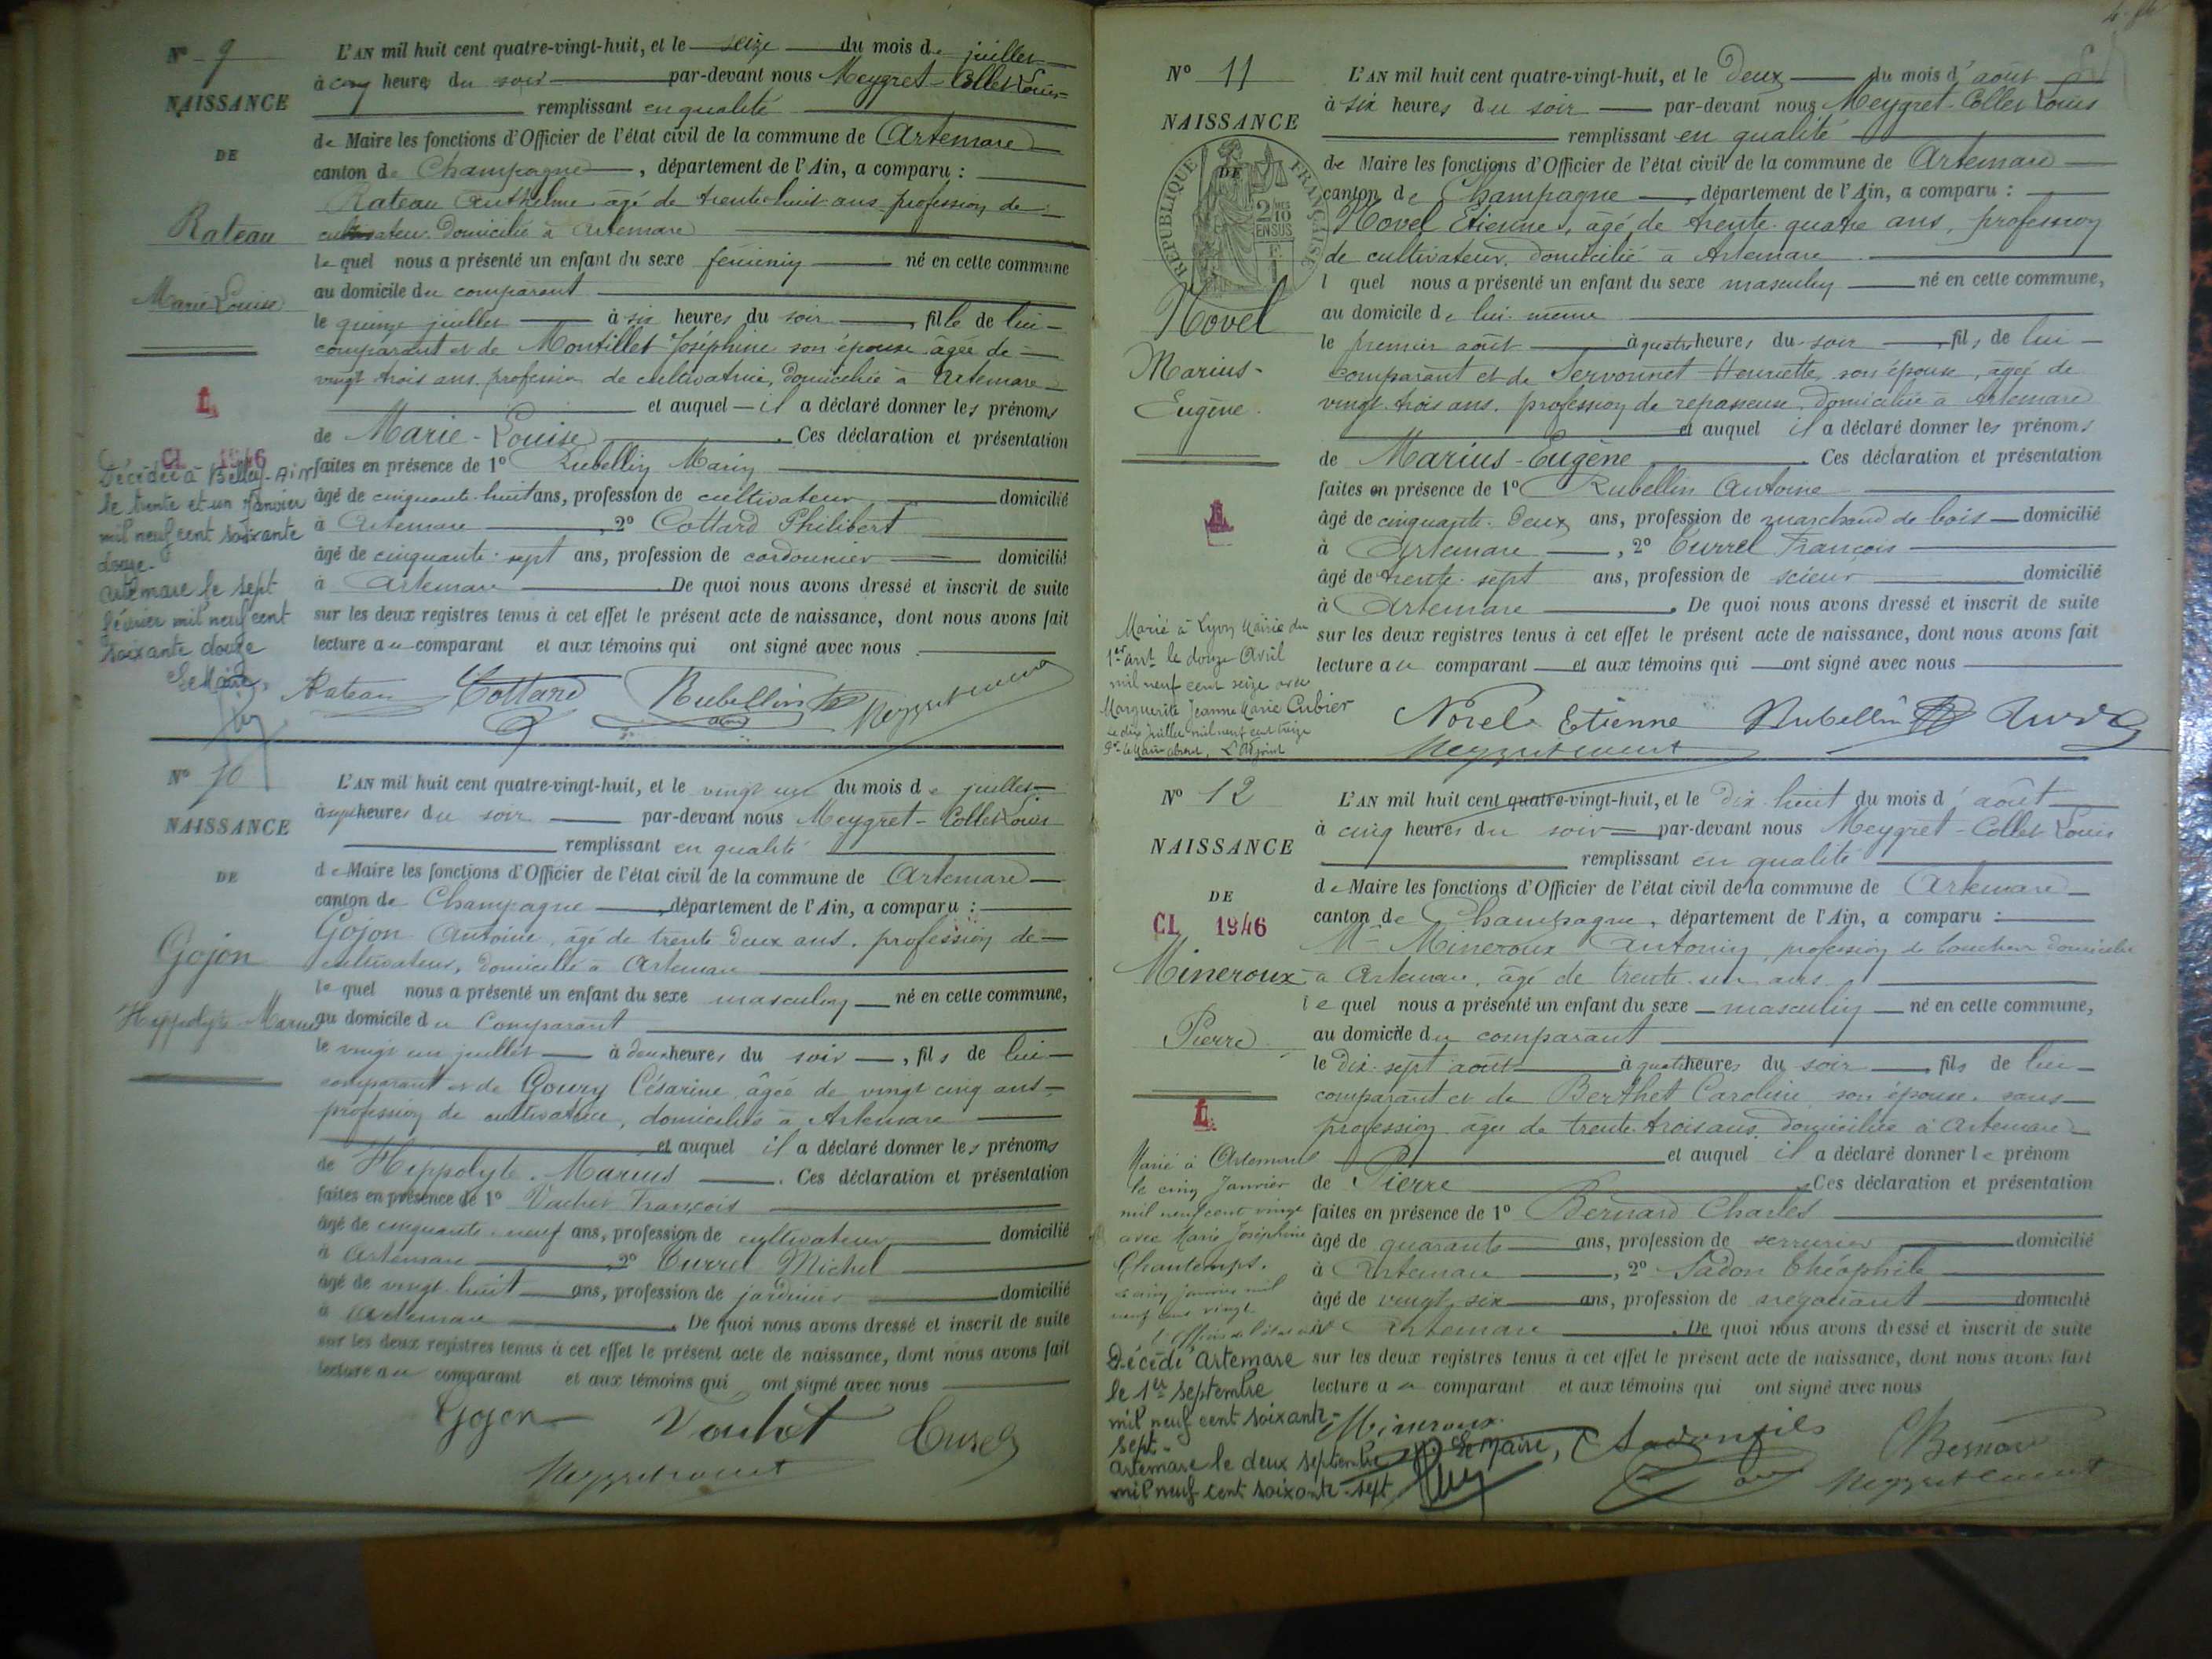 N° 9
NAISSANCE
DE
Rateau
Marie Louise
L'AN mil huit cent quatre-vingt-huit, et le seize du mois de juillet
à cinq heures du soir par-devant nous Meygret-Collet Louis
remplissant en qualité
de Maire les fonctions d'Officier de l'état civil de la commune de Artemare
canton de Champagne, département de l'Ain, a comparu :
Rateau Anthelme âgé de trente huit ans profession de
cultivateur domicilié à Artemare
lequel nous a présenté un enfant du sexe féminin né en cette commune
au domicile du comparant
le quinze juillet à six heures du soir, fille de lui
comparant et de Montillet Joséphine son épouse âgée de
vingt trois ans profession de cultivatrice, domiciliée à Artemare
et auquel il a déclaré donner les prénoms
de Marie-Louise. Ces déclaration et présentation
faites en présence de 1° Rubellin Marin
âgé de cinquante huit ans, profession de cultivateur domicilié
à Artemare, 2° Cottard Philibert
âgé de cinquante sept ans, profession de cordonnier domicilié
à Artemare. De quoi nous avons dressé et inscrit de suite
sur les deux registres tenus à cet effet le présent acte de naissance, dont nous avons fait
lecture au comparant et aux témoins qui ont signé avec nous.
Rateau Cottard Rubellin
L
CL 1946
Décédée à Belley-Ain
le trente et un janvier
mil neuf cent soixante
douze.
Artemare le sept
février mil neuf cent
soixante douze
Le Maire,
N° 10
NAISSANCE
DE
Gojon
Hippolyte Marius
L'AN mil huit cent quatre-vingt-huit, et le vingt un du mois de juillet
heures du soir par-devant nous Meygret-Collet Louis
remplissant en qualité
de Maire les fonctions d'Officier de l'état civil de la commune de Artemare
canton de Champagne, département de l'Ain, a comparu :
Gojon Antoine, âgé de trente deux ans, profession de
cultivateur, domicilié à Artemare
lequel nous a présenté un enfant du sexe masculin né en cette commune,
au domicile du Comparant
le vingt un juillet à deux heures du soir, fils de lui
comparant et de Goury Césarine âgée de vingt cinq ans
profession de cultivatrice, domiciliée à Artemare
et auquel il a déclaré donner les prénoms
de Hippolyte Marius. Ces déclaration et présentation
faites en présence de 1° Vachet François
âgé de cinquante neuf ans, profession de cultivateur domicilié
à Artemare 2° Currel Michel
âgé de vingt huit ans, profession de jardinier domicilié
à Artemare. De quoi nous avons dressé et inscrit de suite
sur les deux registres tenus à cet effet le présent acte de naissance, dont nous avons fait
lecture au comparant et aux témoins qui ont signé avec nous
Gojon Vachet
N° 11
NAISSANCE
DE
RÉPUBLIQUE FRANÇAISE
2 MES
10
EN SUS
Novel
Marius-
Eugène
L'AN mil huit cent quatre-vingt-huit, et le deux du mois d'août
à six heures du soir par-devant nous Meygret-Collet Louis
remplissant en qualité
de Maire les fonctions d'Officier de l'état civil de la commune de Artemare
canton de Champagne, département de l'Ain, a comparu :
Novel Etienne, âgé de trente quatre ans, profession
de cultivateur, domicilié à Artemare
l quel nous a présenté un enfant du sexe masculin né en cette commune,
au domicile de lui même
le premier août à quatre heures du soir, fils de lui
comparant et de Servonnet Henriette, son épouse, âgée de
vingt trois ans, profession de repasseuse, domiciliée à Artemare
et auquel il a déclaré donner les prénoms
de Marius-Eugène. Ces déclaration et présentation
faites en présence de 1° Rubellin Antoine
âgé de cinquante deux ans, profession de marchand de bois domicilié
à Artemare, 2° Currel François
âgé de trente sept ans, profession de scieur domicilié
à Artemare. De quoi nous avons dressé et inscrit de suite
sur les deux registres tenus à cet effet le présent acte de naissance, dont nous avons fait
lecture au comparant et aux témoins qui ont signé avec nous
Novel Etienne Rubellin
Marié à Lyon Mairie du
1er arrt le douze Avril
mil neuf cent seize avec
Marguerite Jeanne Marie Cubier
N° 12
NAISSANCE
DE
CL 1946
Mineroux
Pierre
L'AN mil huit cent quatre-vingt-huit, et le dix huit du mois d'août
à cinq heures du soir par-devant nous Meygret-Collet Louis
remplissant en qualité
de Maire les fonctions d'Officier de l'état civil de la commune de Artemare
canton de Champagne, département de l'Ain, a comparu :
Mr Mineroux Antonin, profession de boucher domicilié
à Artemare, âgé de trente un ans
lequel nous a présenté un enfant du sexe masculin né en cette commune,
au domicile du comparant
le dix sept août à quatre heures du soir, fils de lui
comparant et de Berthet Caroline, son épouse, sans
profession âgée de trente trois ans, domiciliée à Artemare
et auquel il a déclaré donner le prénom
de Pierre. Ces déclaration et présentation
faites en présence de 1° Bernard Charles
âgé de quarante ans, profession de serrurier domicilié
à Artemare, 2° Sadon Théophile
âgé de vingt six ans, profession de négociant domicilié
à Artemare. De quoi nous avons dressé et inscrit de suite
sur les deux registres tenus à cet effet le présent acte de naissance, dont nous avons fait
lecture au comparant et aux témoins qui ont signé avec nous
Mineroux
L
Marié à Artemare
le cinq Janvier
mil neuf cent vingt
avec Marie Joséphine
Chantemps.
Le cinq janvier mil
neuf cent vingt
L'officier de l'état civil
Décédé Artemare
le 1er septembre
mil neuf cent soixante-
sept.
Artemare le deux septembre
mil neuf cent soixante-sept
Le Maire,